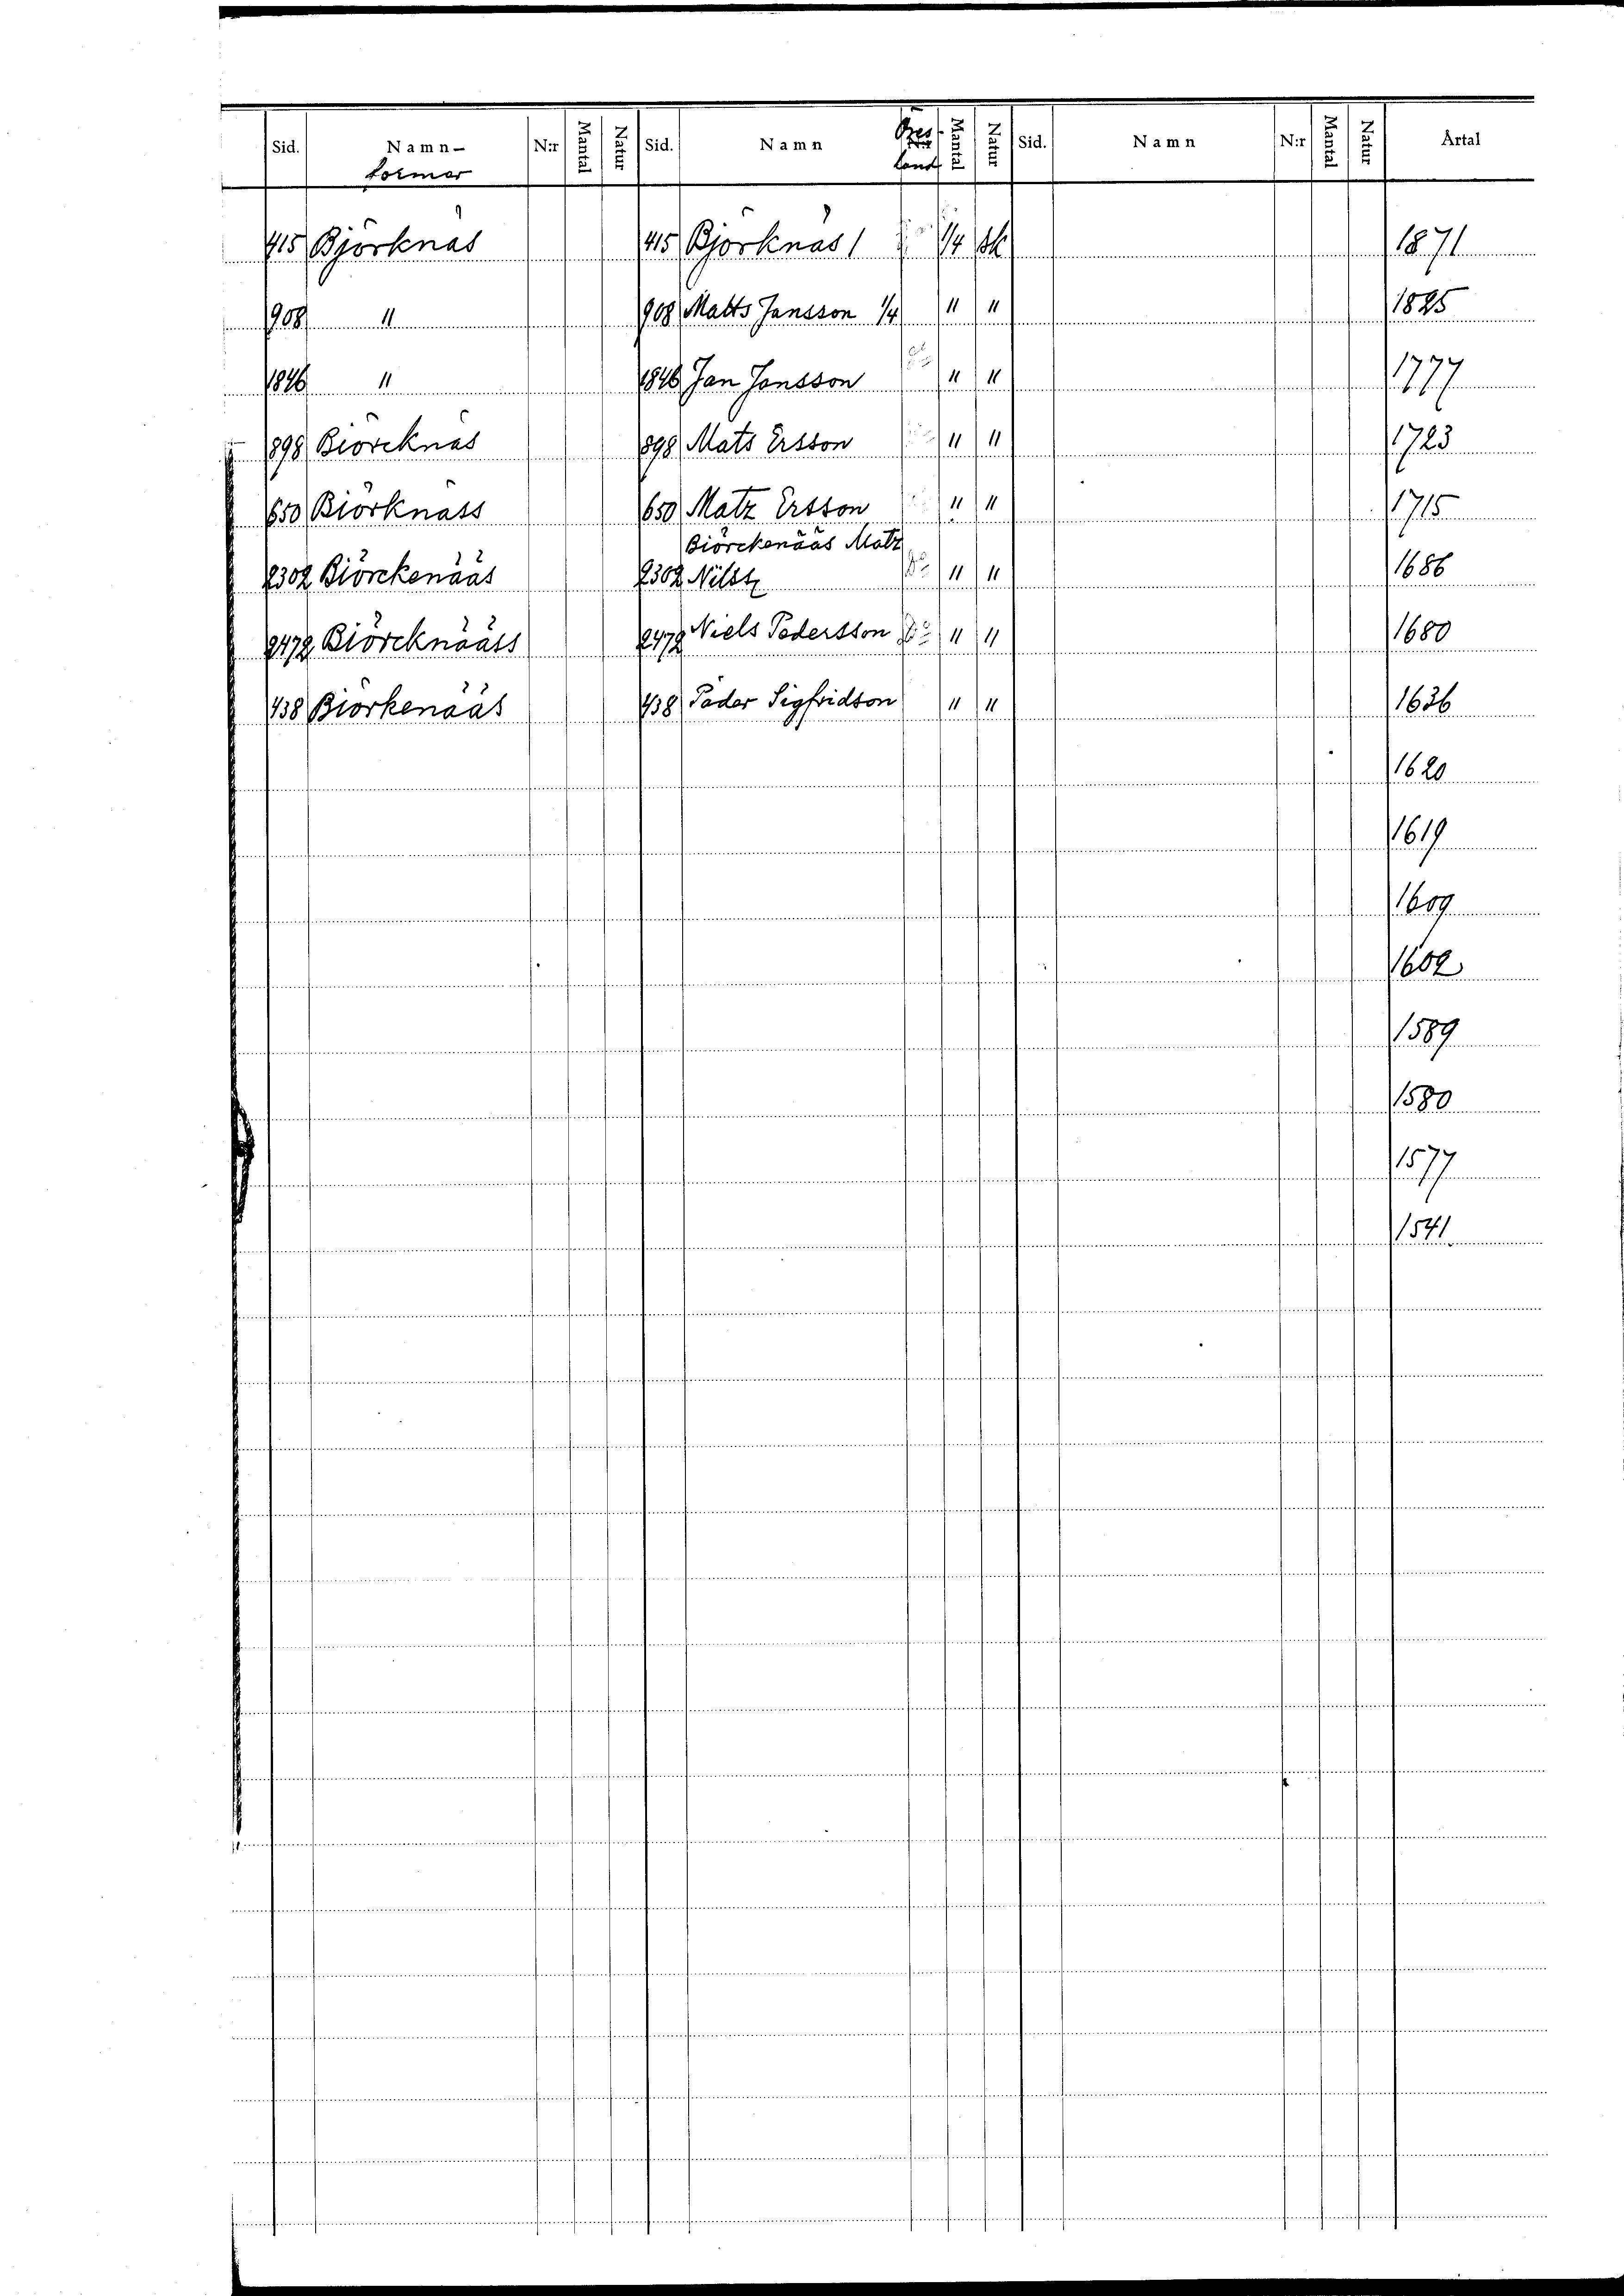 Sid. Namn- N:r Mantal Natur Sid. Namn Mantal Natur Sid. Namn N:r Mantal Natur Årtal
former land
415 Björknäs 415 Björknäs 1 1/4 sk 1871
908 " 908 Matts Jansson 1/4 " " 1825
1846 " 1846 Jan Jansson " " 1777
898 Biörcknäs 898 Mats Ersson " " 1723
650 Biörknäss 650 Matz Ersson " " 1715
Biörckenääs Matz
2302 Biörckenääs 2302 Nilss D:o " " 1686
2472 Biörcknääss 2472 Niels Pedersson D:o " " 1680
438 Biörkenääs 438 Päder Sigfridson " " 1636
1620
1619
1609
1602
1589
1580
1577
1541